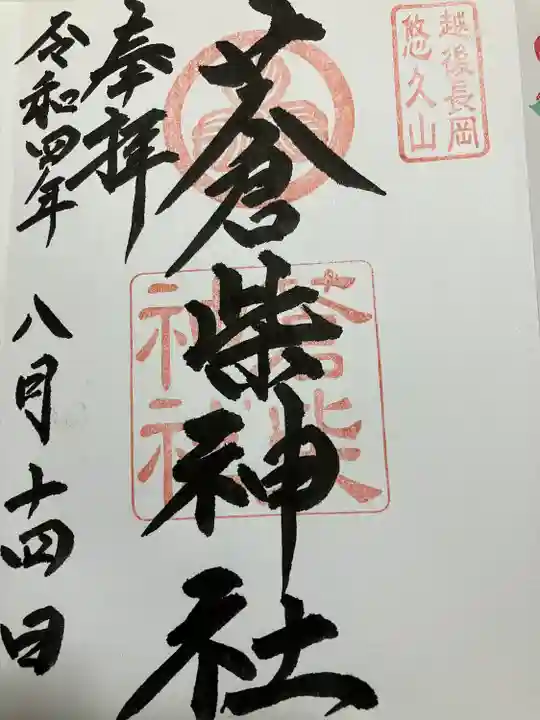 越後長岡
悠久山
蒼柴神社
蒼柴
神社
奉拝
令和四年
八月十四日